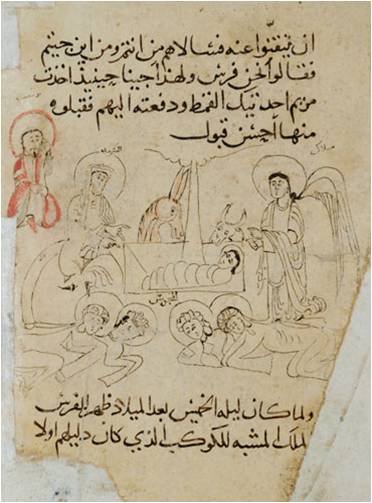 ان يتيقنوا عنه فسئالاهم من انتم ومن اين جيتم
فقالوا نحن فرس ولهذا جينا حينيذ اخذت
مريم احد تيك القمط ودفعته اليهم فقبلوه
منها احسن قبول
ملاك
المجوس
ولما كان ليله الخميس بعد الميلاد ظهر للفرس
الملاك المشبه للكوكب الذي كان دليلهم اولا